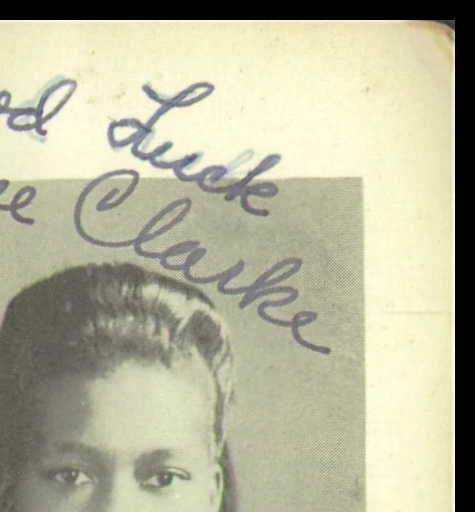 od Luck
e Clarke